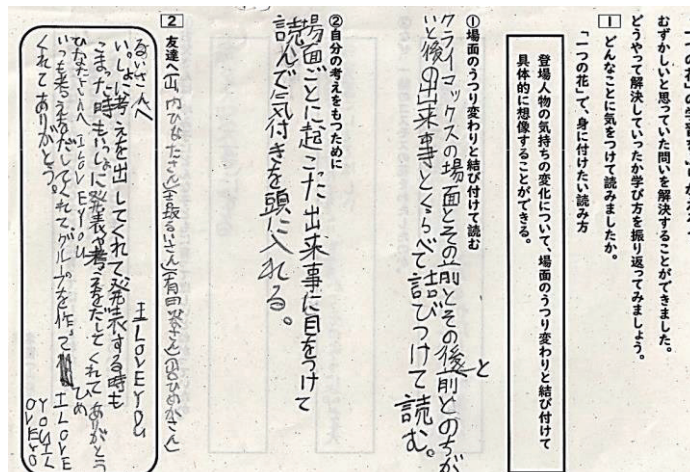 むずかしいと思っていた問いを解決することができました。
どうやって解決していったか学び方を振り返ってみましょう。
1 どんなことに気をつけて読みましたか。
「一つの花」で、身に付けたい読み方
登場人物の気持ちの変化について、場面のうつり変わりと結び付けて
具体的に想像することができる。
①場面のうつり変わりと結び付けて読む
クライマックスの場面とその前とその後前とのちが
いと後の出来事とくらべて結びつけて読む。
②自分の考えをもつために
場面ごとに起こった出来事に目をつけて
読んで気付きを頭に入れる。
2 友達へ
るいさんへ I LOVE YOU
いっしょに考えを出してくれて発表する時も
こまった時もいっしょに発表や考えをだしてくれてありがとう
ひなたさんへ I LOVE YOU
いつも考えをだしてくれてグループを作って
くれてありがとう。
I LOVE
YOU